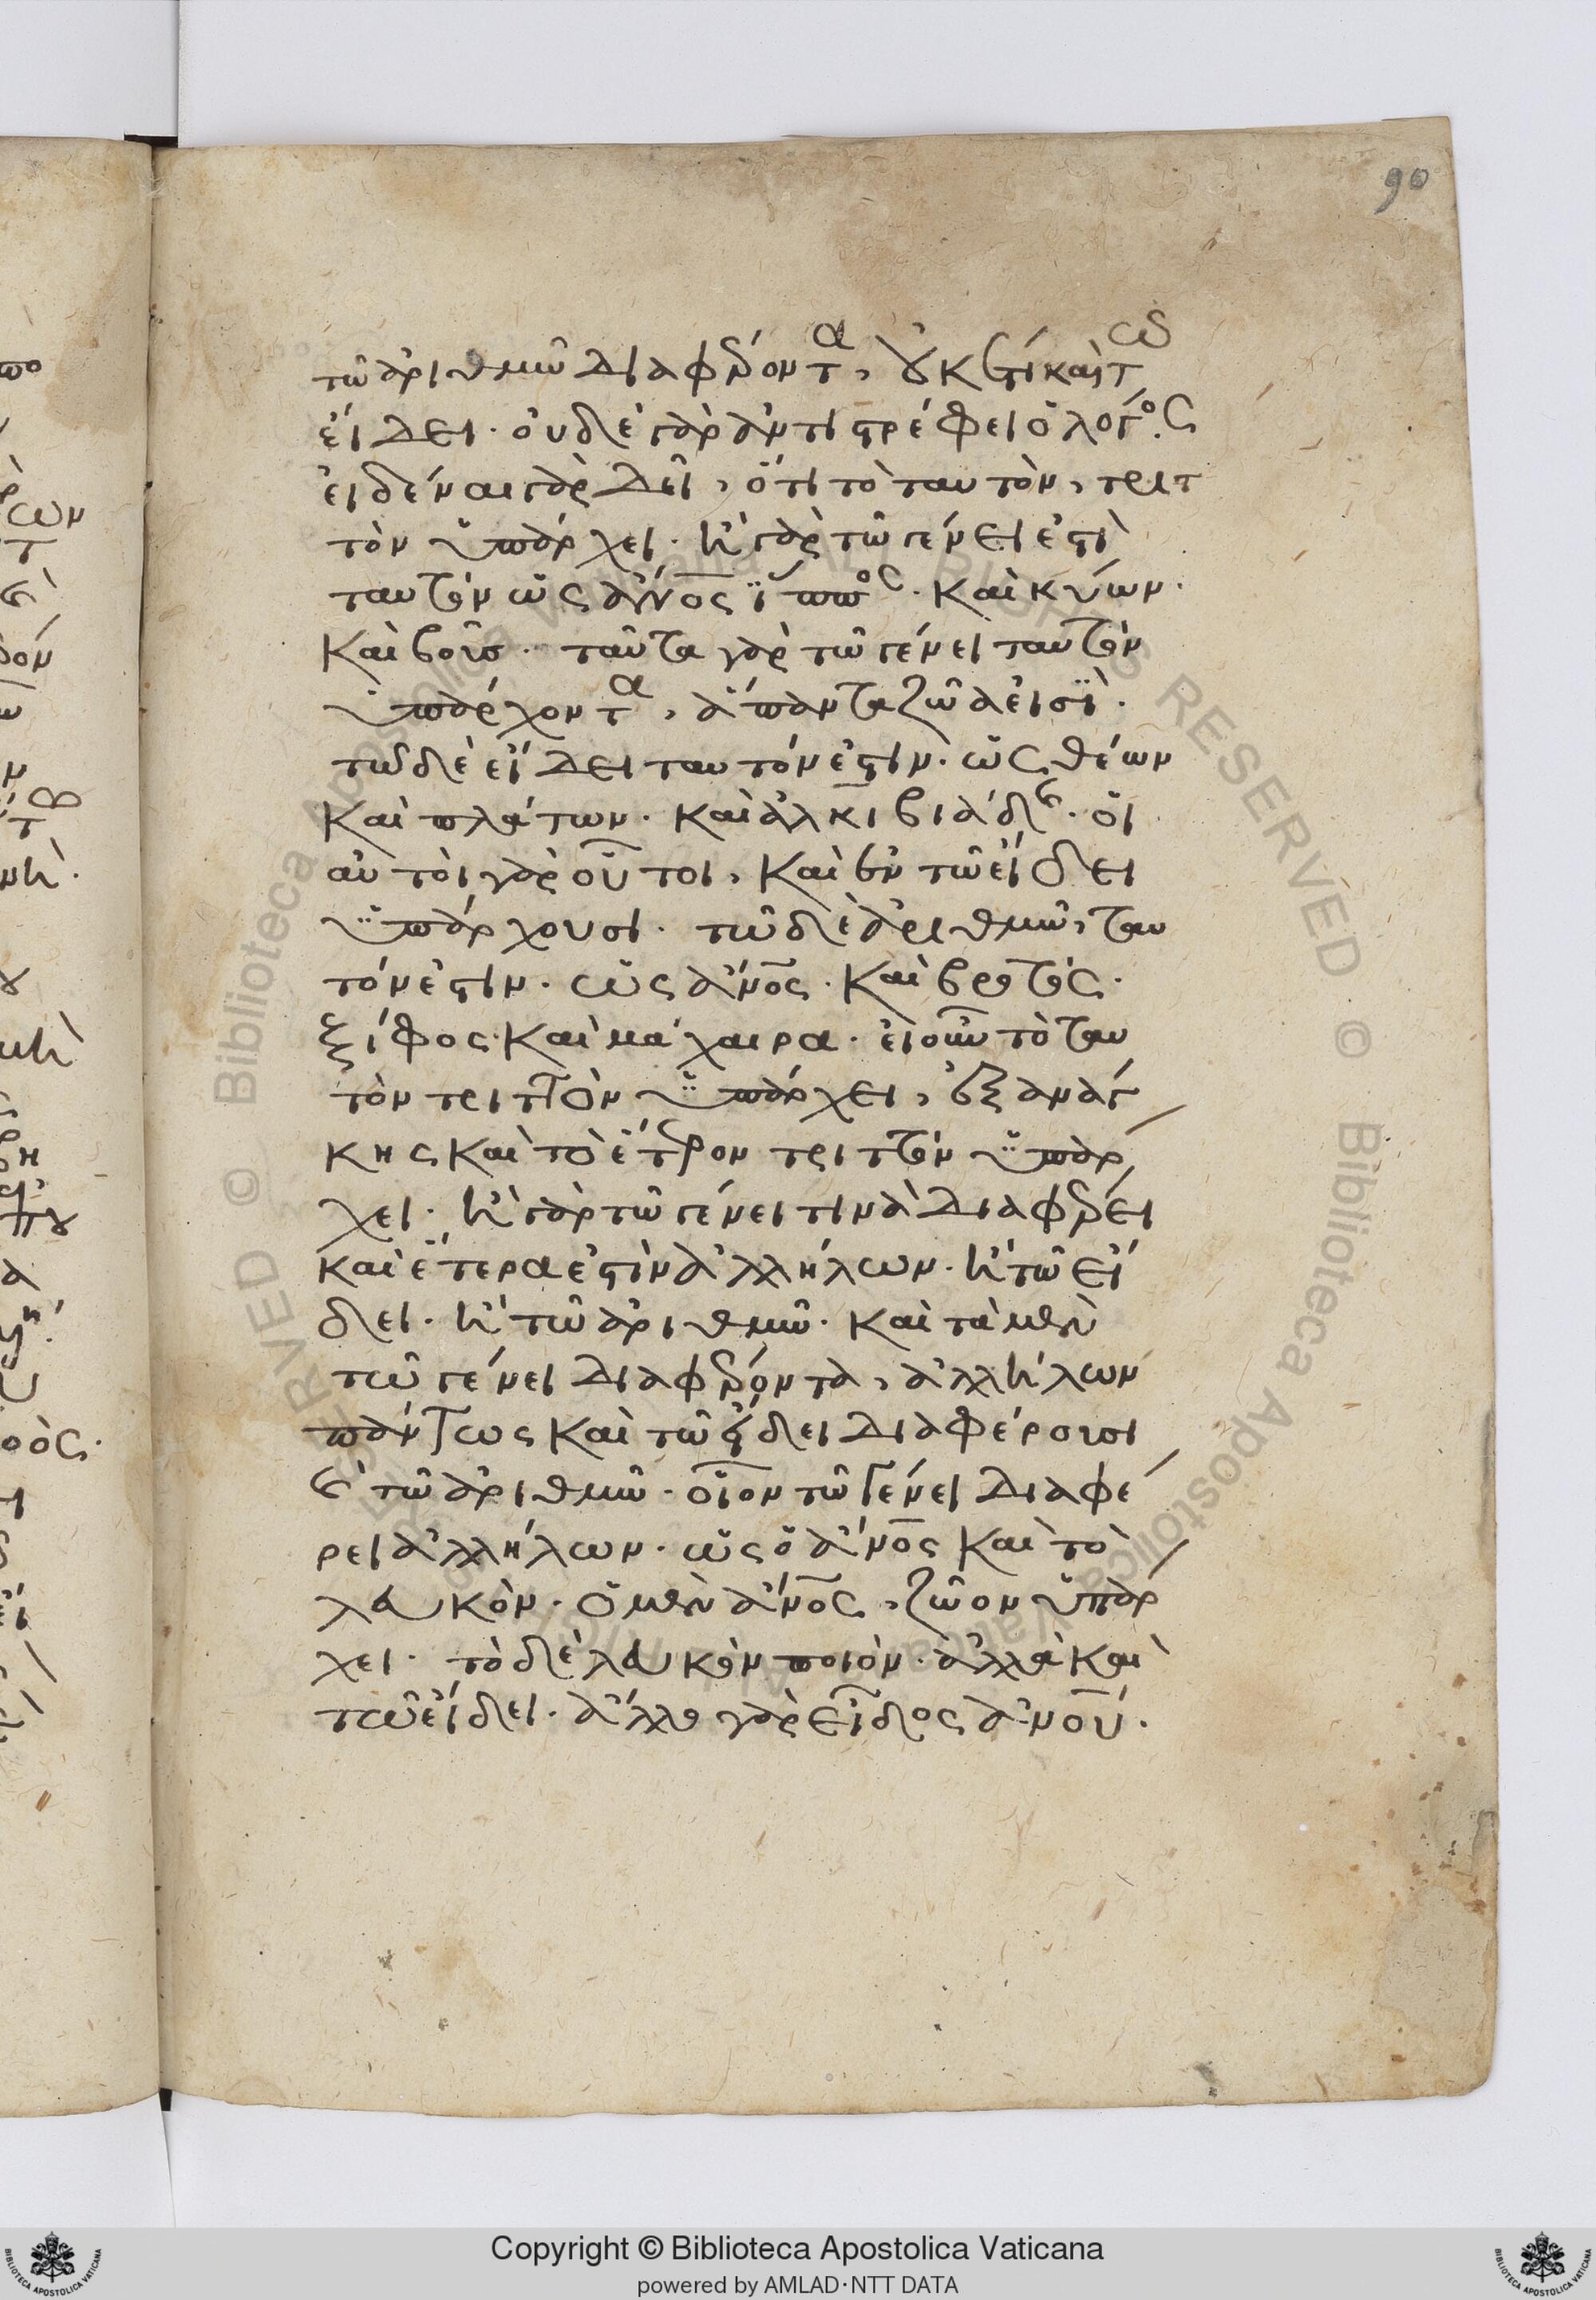 90
τῶ ἀριθμῶ διαφέροντα, οὐκέτι καὶ τῶ
εἴδει. οὐδὲ γὰρ ἀντιστρέφει ὁ λόγος.
εἰδέναι γὰρ δεῖ, ὅτι τὸ ταυτὸν, τριτ
τὸν ὑπάρχει. ἢ γὰρ τῶ γένει ἐστὶ
ταυτὸν ὡς ἄν̅ο̅ς ἵππος. καὶ κύων.
καὶ βοῦσ. ταῦτα γὰρ τῶ γένει ταυτὸν
ὑπάρχοντα, ἅπαντα ζῶα εἰσϊ.
τῶ δὲ εἴδει ταυτόν ἐστιν. ὡς θέων
καὶ πλάτων. καὶ ἀλκιβιάδης. οἱ
αὐτοὶ γὰρ οὗτοι, καὶ ἐν τῶ εἴδει
ὑπάρχουσι. τῶ δὲ ἀριθμῶ, ταυ
τόν ἐστιν. ὡς ἄν̅ο̅ς. καὶ βροτός.
ξίφος. καὶ μάχαιρα. εἰ οὖν τὸ ταυ
τὸν τριττὸν ὑπάρχει, ἐξ ἀνάγ
κης καὶ τὸ ἕτερον τριττὸν ὑπάρ
χει. ἢ γὰρ τῶ γένει τινὰ διαφέρει
καὶ ἕτερα ἐστὶν ἀλλήλων. ἢ τῶ εἴ
δει. ἢ τῶ ἀριθμῶ. καὶ τὰ μὲν
τῶ γένει διαφέροντα, ἀλλήλων
πάντως καὶ τῶ εἴδει διαφέρουσι
καὶ τῶ ἀριθμῶ. οἷον τῶ γένει διαφέ
ρει ἀλλήλων. ὡς ὁ ἄν̅ο̅ς καὶ τὸ
λευκὸν. ὁ μὲν ἄν̅ο̅ς, ζῶον ὑπάρ
χει. τὸ δὲ λευκὸν ποιόν. ἀλλὰ καὶ
τῶ εἴδει. ἄλλο γὰρ εἶδος ἀν̅ο̅υ̅.
Copyright © Biblioteca Apostolica Vaticana
powered by AMLAD·NTT DATA